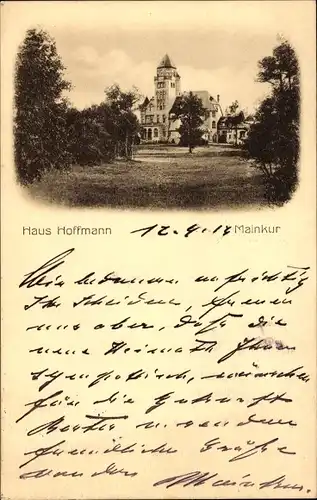 Haus Hoffmann
12.4.17
Mainkur
Wir bedauern aufrichtig
Ihr Scheiden, freuen
uns aber, daß die
neue Heimath Ihnen
sympathisch, wünschen
für die Zukunft
Bestes u. senden
freundliche Grüße
von der Mainkur.